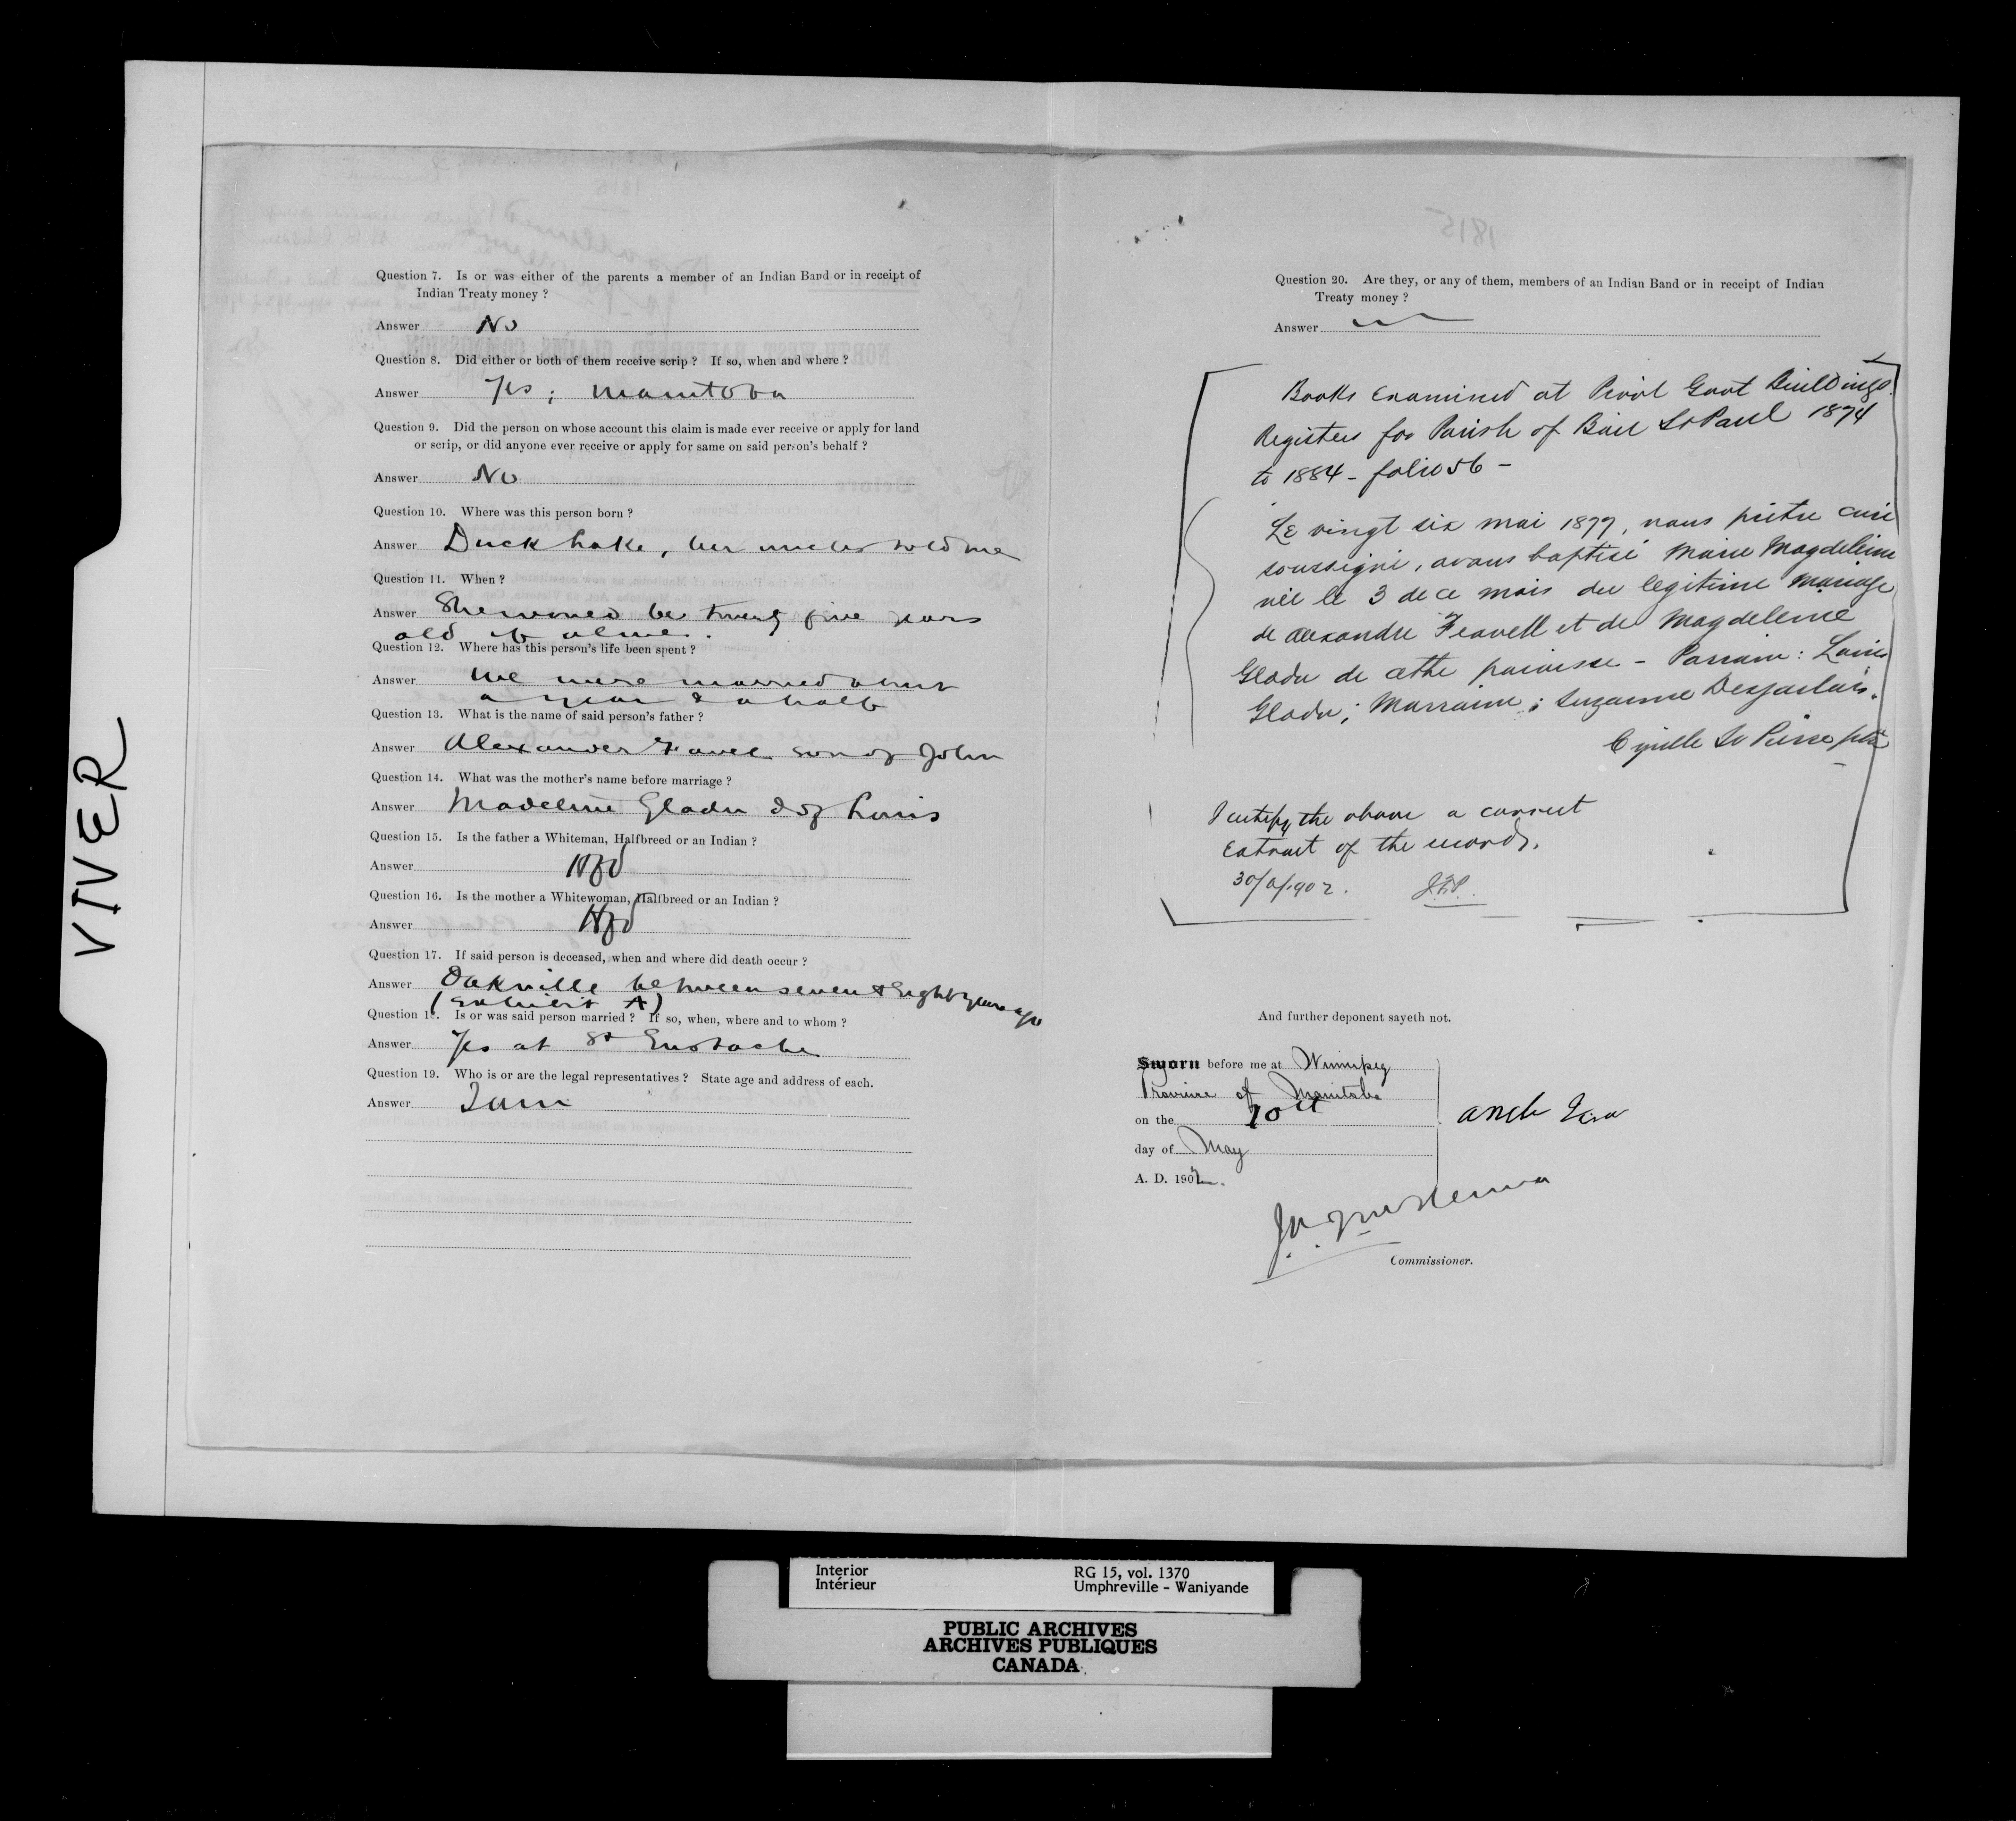 VIVER
Question 7. Is or was either of the parents a member of an Indian Band or in receipt of
Indian Treaty money ?
Answer No
Question 8. Did either or both of them receive scrip ? If so, when and where ?
Answer Yes ; Manitoba
Question 9. Did the person on whose account this claim is made ever receive or apply for land
or scrip, or did anyone ever receive or apply for same on said person's behalf ?
Answer No
Question 10. Where was this person born ?
Answer Duck Lake, her uncles told me
Question 11. When ?
Answer She would be twenty five years
old if alive.
Question 12. Where has this person's life been spent ?
Answer We were married about
a year & a half
Question 13. What is the name of said person's father ?
Answer Alexander Favel son of John
Question 14. What was the mother's name before marriage ?
Answer Madeline Gladu d of Louis
Question 15. Is the father a Whiteman, Halfbreed or an Indian ?
Answer Hfbd
Question 16. Is the mother a Whitewoman, Halfbreed or an Indian ?
Answer Hfbd
Question 17. If said person is deceased, when and where did death occur ?
Answer Oakville between seven & Eight years ago
(Exhibit A)
Question 18. Is or was said person married ? If so, when, where and to whom ?
Answer Yes at St Eustache
Question 19. Who is or are the legal representatives ? State age and address of each.
Answer I am
1815
Question 20. Are they, or any of them, members of an Indian Band or in receipt of Indian
Treaty money ?
Answer
Books Examined at Provl Govt Buildings.
Registers for Parish of Baie St Paul 1874
to 1884 - folio 56 -
Le vingt six mai 1877, nous prêtre curé
soussigné, avons baptisé Marie Magdeleine
née le 3 de ce mois du legitime mariage
de Alexandre Feavell et de Magdeleine
Gladu de cette paroisse - Parrain : Louis
Gladu ; Marraine ; Suzanne Desjarlais.
Cyrille St Pierre ptre
I certify the above a correct
Extract of the records.
30/ /1902. J.F.P.
And further deponent sayeth not.
Sworn before me at Winnipeg
Province of Manitoba
on the
day of May
A. D. 1902.
Commissioner.
Interior
Intérieur
RG 15, vol. 1370
Umphreville - Waniyande
PUBLIC ARCHIVES
ARCHIVES PUBLIQUES
CANADA